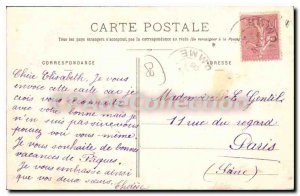 CARTE POSTALE
Tous les pays étrangers n'acceptent pas la correspondance au recto (Se renseigner à la Poste)
CORRESPONDANCE
ADRESSE
Chère Elisabeth, Je vous
envoie cette carte car je
crois vous
avec votre bonne mais je
n'en suis pas
pouvez voir vous-même.
Je vous souhaite de bonnes
vacances de Pâques.
Je vous embrasse ainsi
que vos deux sœurs.
Mademoiselle E. Gentil
11 rue du regard
Paris
(Seine)